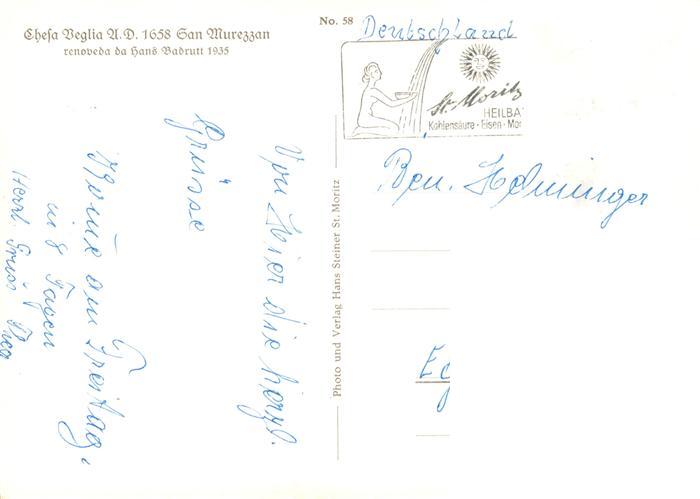 Chesa Veglia A.D. 1658 San Murezzan
renoveda da Hans Badrutt 1935
No. 58
Deutschland
St. Moritz
HEILBA
Kohlensäure - Eisen - Moo
Von Hier die herzl.
Grüsse
Komme am Freitag,
in 8 Tagen
Herzl. Grüss
Photo und Verlag Hans Steiner St. Moritz
Ben. Holminger
Eg